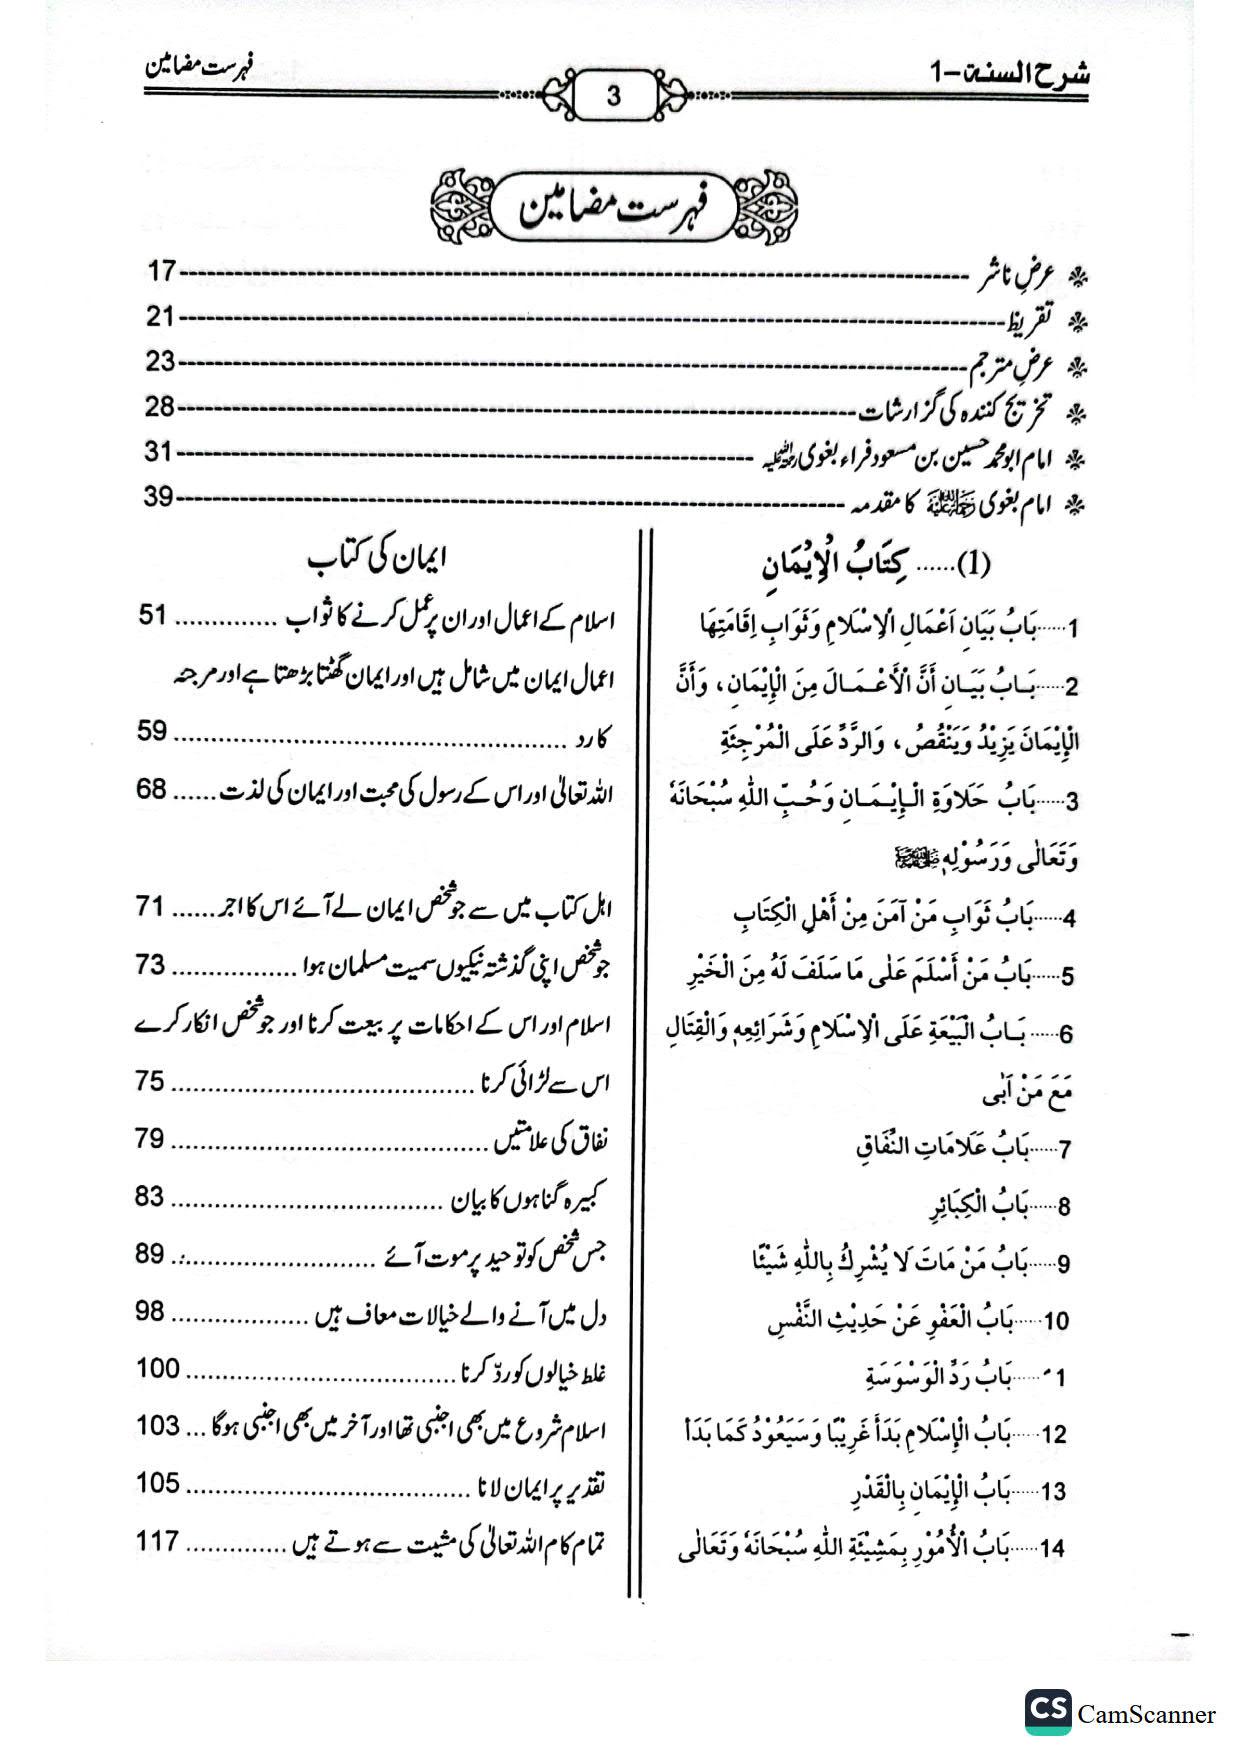 شرح السنة-1
3
فہرست مضامین
فہرست مضامین
عرضِ ناشر ---------- 17
تقریظ ---------- 21
عرضِ مترجم ---------- 23
تخریج کنندہ کی گزارشات ---------- 28
امام ابو محمد حسین بن مسعود فراء بغوی رحمۃ اللہ علیہ ---------- 31
امام بغوی رحمۃ اللہ علیہ کا مقدمہ ---------- 39
(1)...... كِتَابُ الْإِيْمَانِ
ایمان کی کتاب
1.....بَابُ بَيَانِ اَعْمَالِ الْاِسْلَامِ وَثَوَابِ اِقَامَتِهَا
اسلام کے اعمال اور ان پر عمل کرنے کا ثواب .............. 51
2.....بَابُ بَيَانِ أَنَّ الْأَعْمَالَ مِنَ الْإِيْمَانِ، وَأَنَّ
اعمال ایمان میں شامل ہیں اور ایمان گھٹتا بڑھتا ہے اور مرجئہ
الْإِيْمَانَ يَزِيْدُ وَيَنْقُصُ، وَالرَّدِّ عَلَى الْمُرْجِئَةِ
کا رد .............. 59
3.....بَابُ حَلَاوَةِ الْإِيْمَانِ وَحُبِّ اللّٰهِ سُبْحَانَهٗ
اللہ تعالیٰ اور اس کے رسول کی محبت اور ایمان کی لذت ...... 68
وَتَعَالٰى وَرَسُوْلِهٖ ﷺ
4.....بَابُ ثَوَابِ مَنْ آمَنَ مِنْ أَهْلِ الْكِتَابِ
اہل کتاب میں سے جو شخص ایمان لے آئے اس کا اجر ...... 71
5.....بَابُ مَنْ أَسْلَمَ عَلٰى مَا سَلَفَ لَهٗ مِنَ الْخَيْرِ
جو شخص اپنی گذشتہ نیکیوں سمیت مسلمان ہوا .............. 73
6.....بَابُ الْبَيْعَةِ عَلَى الْاِسْلَامِ وَشَرَائِعِهٖ وَالْقِتَالِ
اسلام اور اس کے احکامات پر بیعت کرنا اور جو شخص انکار کرے
مَعَ مَنْ اَبٰى
اس سے لڑائی کرنا .............. 75
7.....بَابُ عَلَامَاتِ النِّفَاقِ
نفاق کی علامتیں .............. 79
8.....بَابُ الْكَبَائِرِ
کبیرہ گناہوں کا بیان .............. 83
9.....بَابُ مَنْ مَاتَ لَا يُشْرِكُ بِاللّٰهِ شَيْئًا
جس شخص کو توحید پر موت آئے .............. 89
10.....بَابُ الْعَفْوِ عَنْ حَدِيْثِ النَّفْسِ
دل میں آنے والے خیالات معاف ہیں .............. 98
1.....بَابُ رَدِّ الْوَسْوَسَةِ
غلط خیالوں کو ردّ کرنا .............. 100
12.....بَابُ الْإِسْلَامِ بَدَأَ غَرِيْبًا وَسَيَعُوْدُ كَمَا بَدَأَ
اسلام شروع میں بھی اجنبی تھا اور آخر میں بھی اجنبی ہوگا ... 103
13.....بَابُ الْإِيْمَانِ بِالْقَدْرِ
تقدیر پر ایمان لانا .............. 105
14.....بَابُ الْأُمُوْرِ بِمَشِيْئَةِ اللّٰهِ سُبْحَانَهٗ وَتَعَالٰى
تمام کام اللہ تعالیٰ کی مشیت سے ہوتے ہیں .............. 117
CS CamScanner